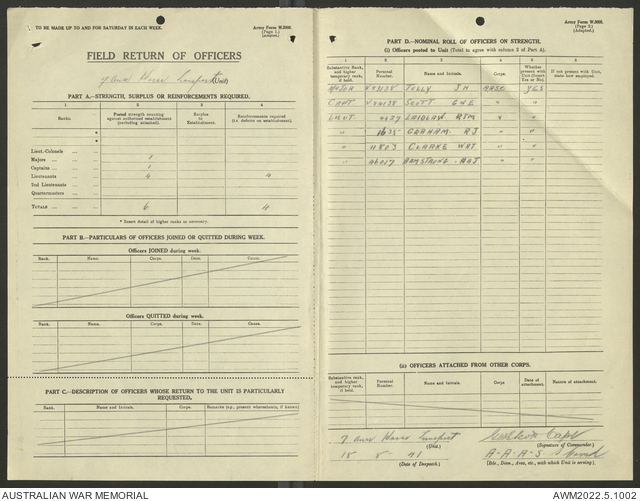 TO BE MADE UP TO AND FOR SATURDAY IN EACH WEEK.
Army Form W.3008.
(Page 1.)
(Adapted.)
FIELD RETURN OF OFFICERS
(Unit)
PART A.—STRENGTH, SURPLUS OR REINFORCEMENTS REQUIRED.
1 2 3 4
Ranks. Posted strength counting against authorised establishment (excluding attached). Surplus to Establishment. Reinforcements required (i.e. defects on establishment).
*
*
Lieut.-Colonels
Majors ... 1
Captains ... 1
Lieutenants ... 4 4
2nd Lieutenants ...
Quartermasters ...
TOTALS ... 6 4
* Insert detail of higher ranks as necessary.
PART B.—PARTICULARS OF OFFICERS JOINED OR QUITTED DURING WEEK.
Officers JOINED during week.
Rank. Name. Corps. Date. Whence.
Officers QUITTED during week.
Rank. Name. Corps. Date. Cause.
PART C.—DESCRIPTION OF OFFICERS WHOSE RETURN TO THE UNIT IS PARTICULARLY REQUESTED.
Rank. Name and Initials. Corps. Remarks (e.g., present whereabouts, if known)
Army Form W.3008.
(Page 2.)
(Adapted.)
PART D.—NOMINAL ROLL OF OFFICERS ON STRENGTH.
(i) Officers posted to Unit (Total to agree with column 2 of Part A).
1 2 3 4 5 6
Substantive Rank, and higher temporary rank, if held. Personal Number. Name and Initials. Corps. Whether present with Unit (Insert Yes or No). If not present with Unit, state how employed.
MAJOR TULLY J.H AASC YES
CAPT SCOTT G H E " "
LIEUT LAIDLAW RTM " "
" GRAHAM RJ " "
" 11803 CLARKE WRT " "
" ARMSTRONG " "
(ii) OFFICERS ATTACHED FROM OTHER CORPS.
Substantive rank, and higher temporary rank, if held. Personal Number. Name and Initials. Corps Date of attachment. Nature of attachment.
(Unit.)
(Signature of Commander.)
(Date of Despatch.)
(Bde., Divn., Area, etc., with which Unit is serving).
AUSTRALIAN WAR MEMORIAL
AWM2022.5.1002